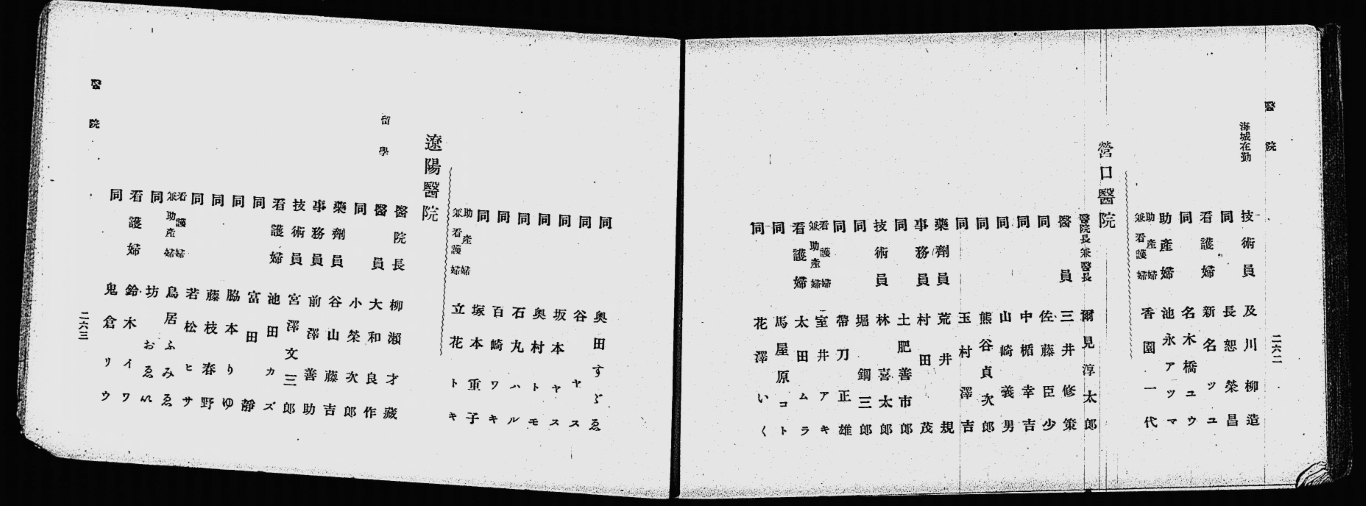 醫院
海城在勤
技術員 及川柳造
同 長恕榮昌
看護婦 新名ツユ
同 名木橋ユウ
助產婦 池永アツマ
助產婦兼看護婦 香園一代
營口醫院
醫院長兼醫長 爾見淳太郎
醫員 三井修策
同 佐藤臣少
同 中楯幸吉
同 山崎義男
同 熊谷貞次郎
同 玉村澤吉
藥劑員 荒井規
事務員 村田茂
同 土肥善市郎
技術員 林喜太郎
同 堀鋼三郎
同 帶刀正雄
看護婦兼助產婦 室井アキ
看護婦 太田ムラ
同 馬屋原コト
同 花澤いく
二六二
同 奧田すゞゑ
同 谷ヤス
同 坂本ヤス
同 奧村トモ
同 石丸ハル
同 百崎ワキ
同 塚本重子
助產婦兼看護婦 立花トキ
遼陽醫院
醫院長 柳瀨才藏
醫員 大和良作
同 小榮次郎
藥劑員 谷山藤吉
事務員 前澤善助
技術員 宮澤文三郎
看護婦 池田カズ
同 富田靜
同 脇本りゆ
同 藤枝春野
同 若松ヒサ
看護婦兼助產婦 鳥居ふみゑ
同 坊おゑい
看護婦 鈴木イワ
同 鬼倉リウ
留學
醫院
二六三